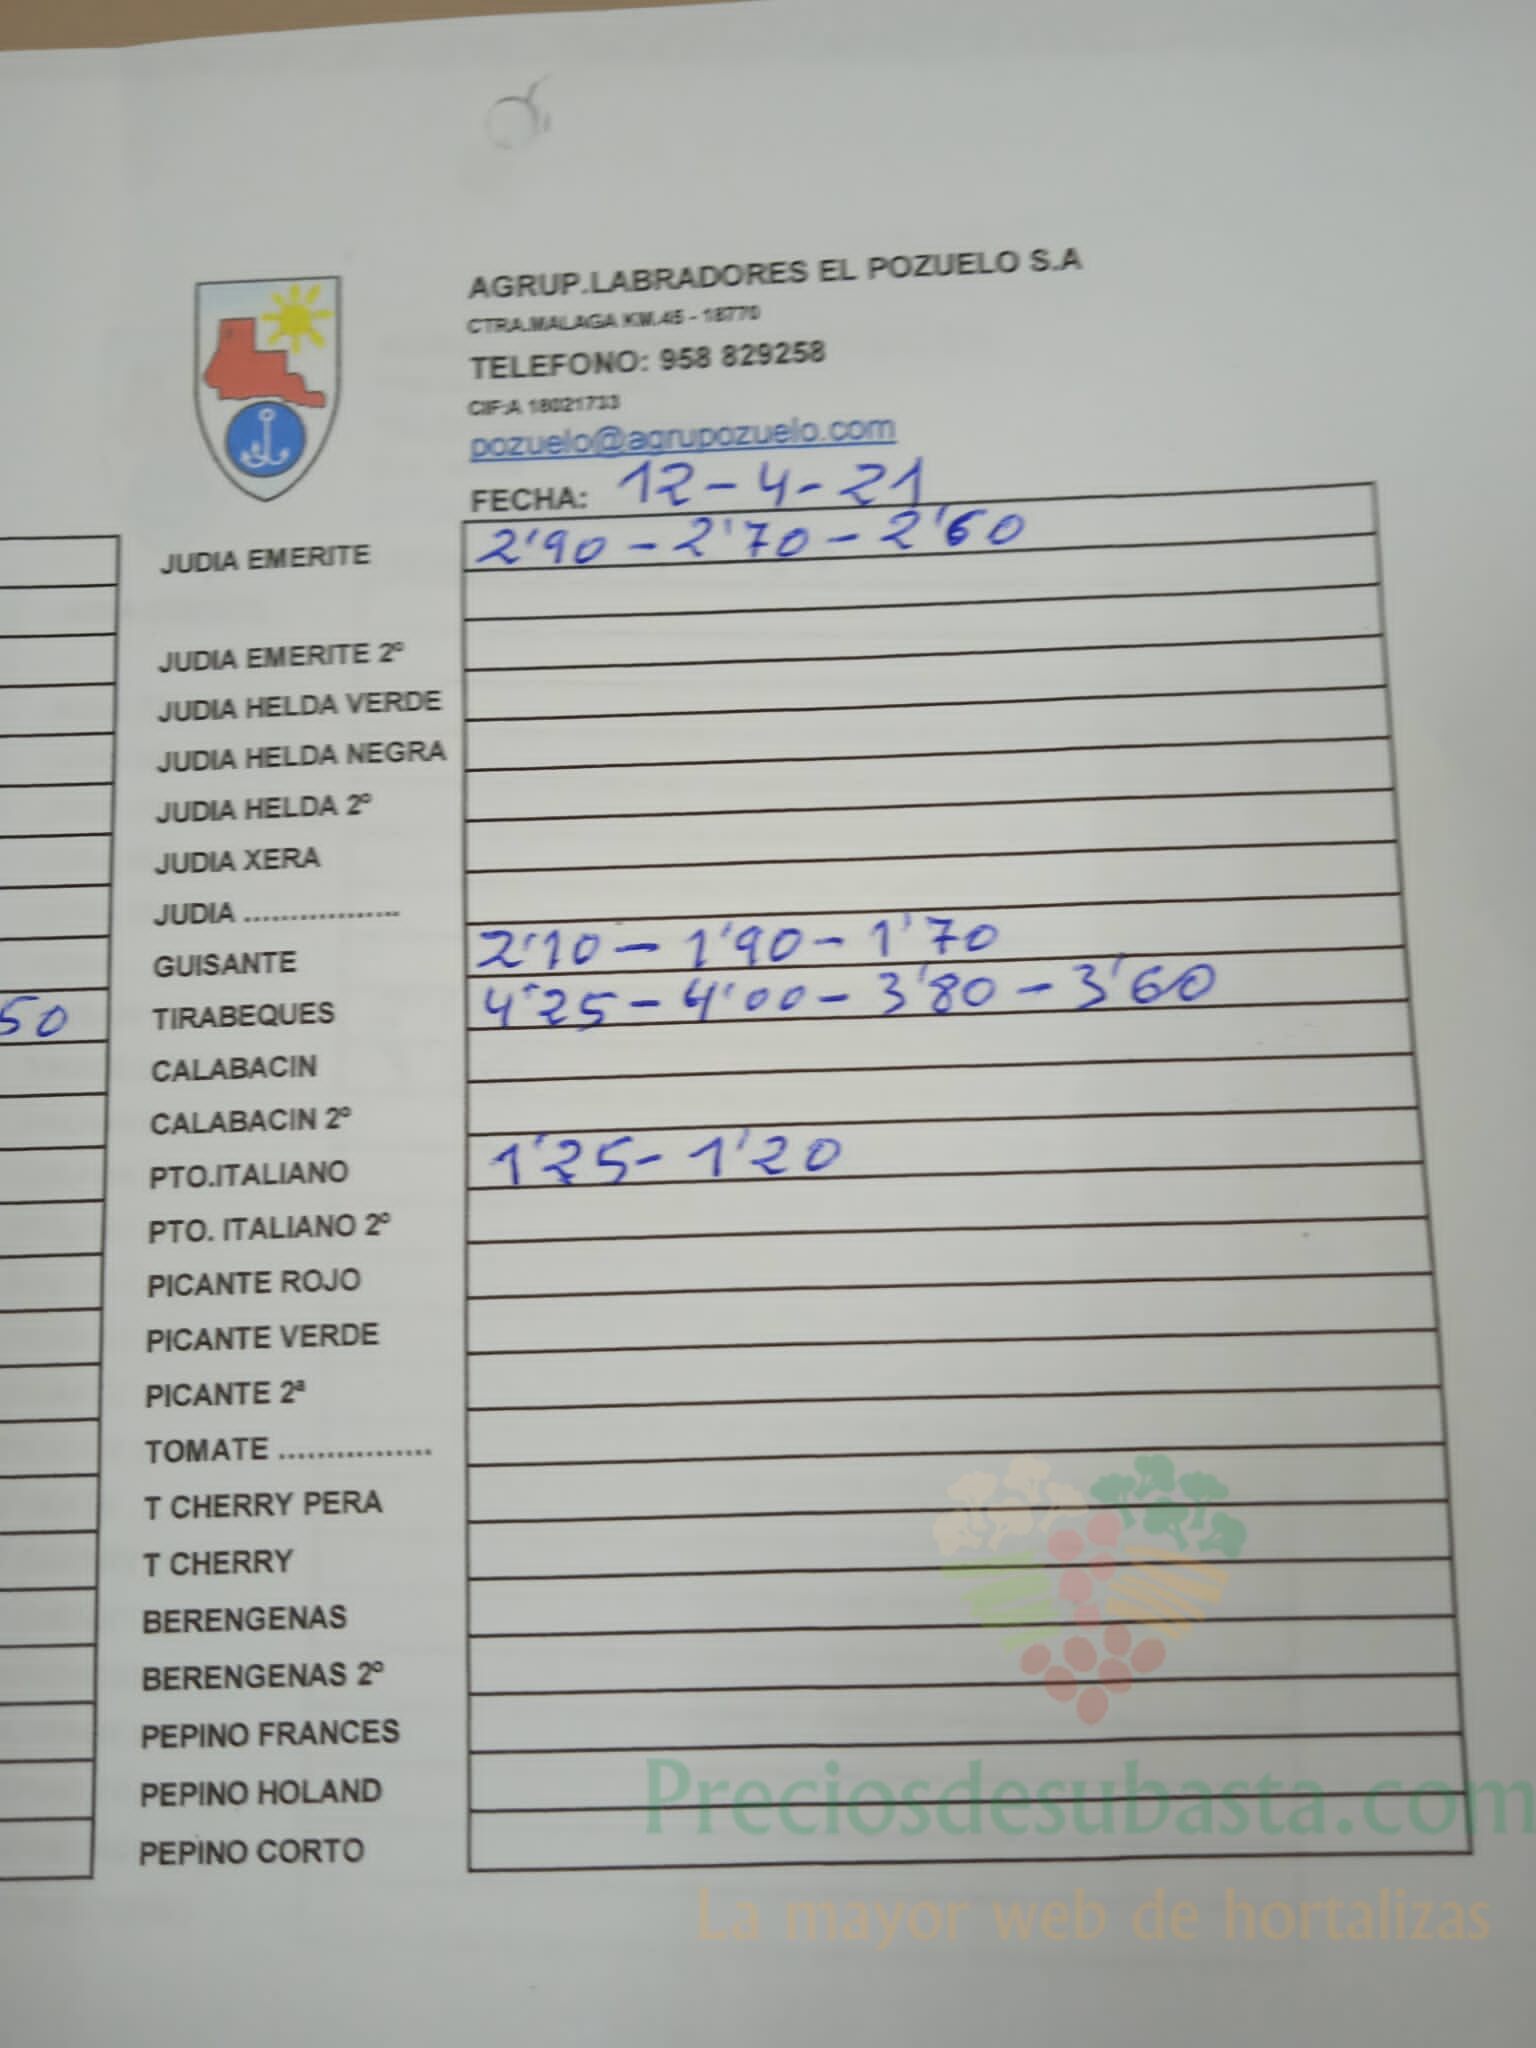 AGRUP.LABRADORES EL POZUELO S.A
CTRA.MALAGA KM.45 - 18770
TELEFONO: 958 829258
CIF:A 18021733
pozuelo@agrupozuelo.com
FECHA: 12-4-21
JUDIA EMERITE 2'90 - 2'70 - 2'60
JUDIA EMERITE 2º
JUDIA HELDA VERDE
JUDIA HELDA NEGRA
JUDIA HELDA 2º
JUDIA XERA
JUDIA .................
GUISANTE 2'10 - 1'90 - 1'70
50
TIRABEQUES 4'25 - 4'00 - 3'80 - 3'60
CALABACIN
CALABACIN 2º
PTO.ITALIANO 1'25 - 1'20
PTO. ITALIANO 2º
PICANTE ROJO
PICANTE VERDE
PICANTE 2ª
TOMATE ................
T CHERRY PERA
T CHERRY
BERENGENAS
BERENGENAS 2º
PEPINO FRANCES
PEPINO HOLAND
PEPINO CORTO
Preciosdesubasta.com
La mayor web de hortalizas